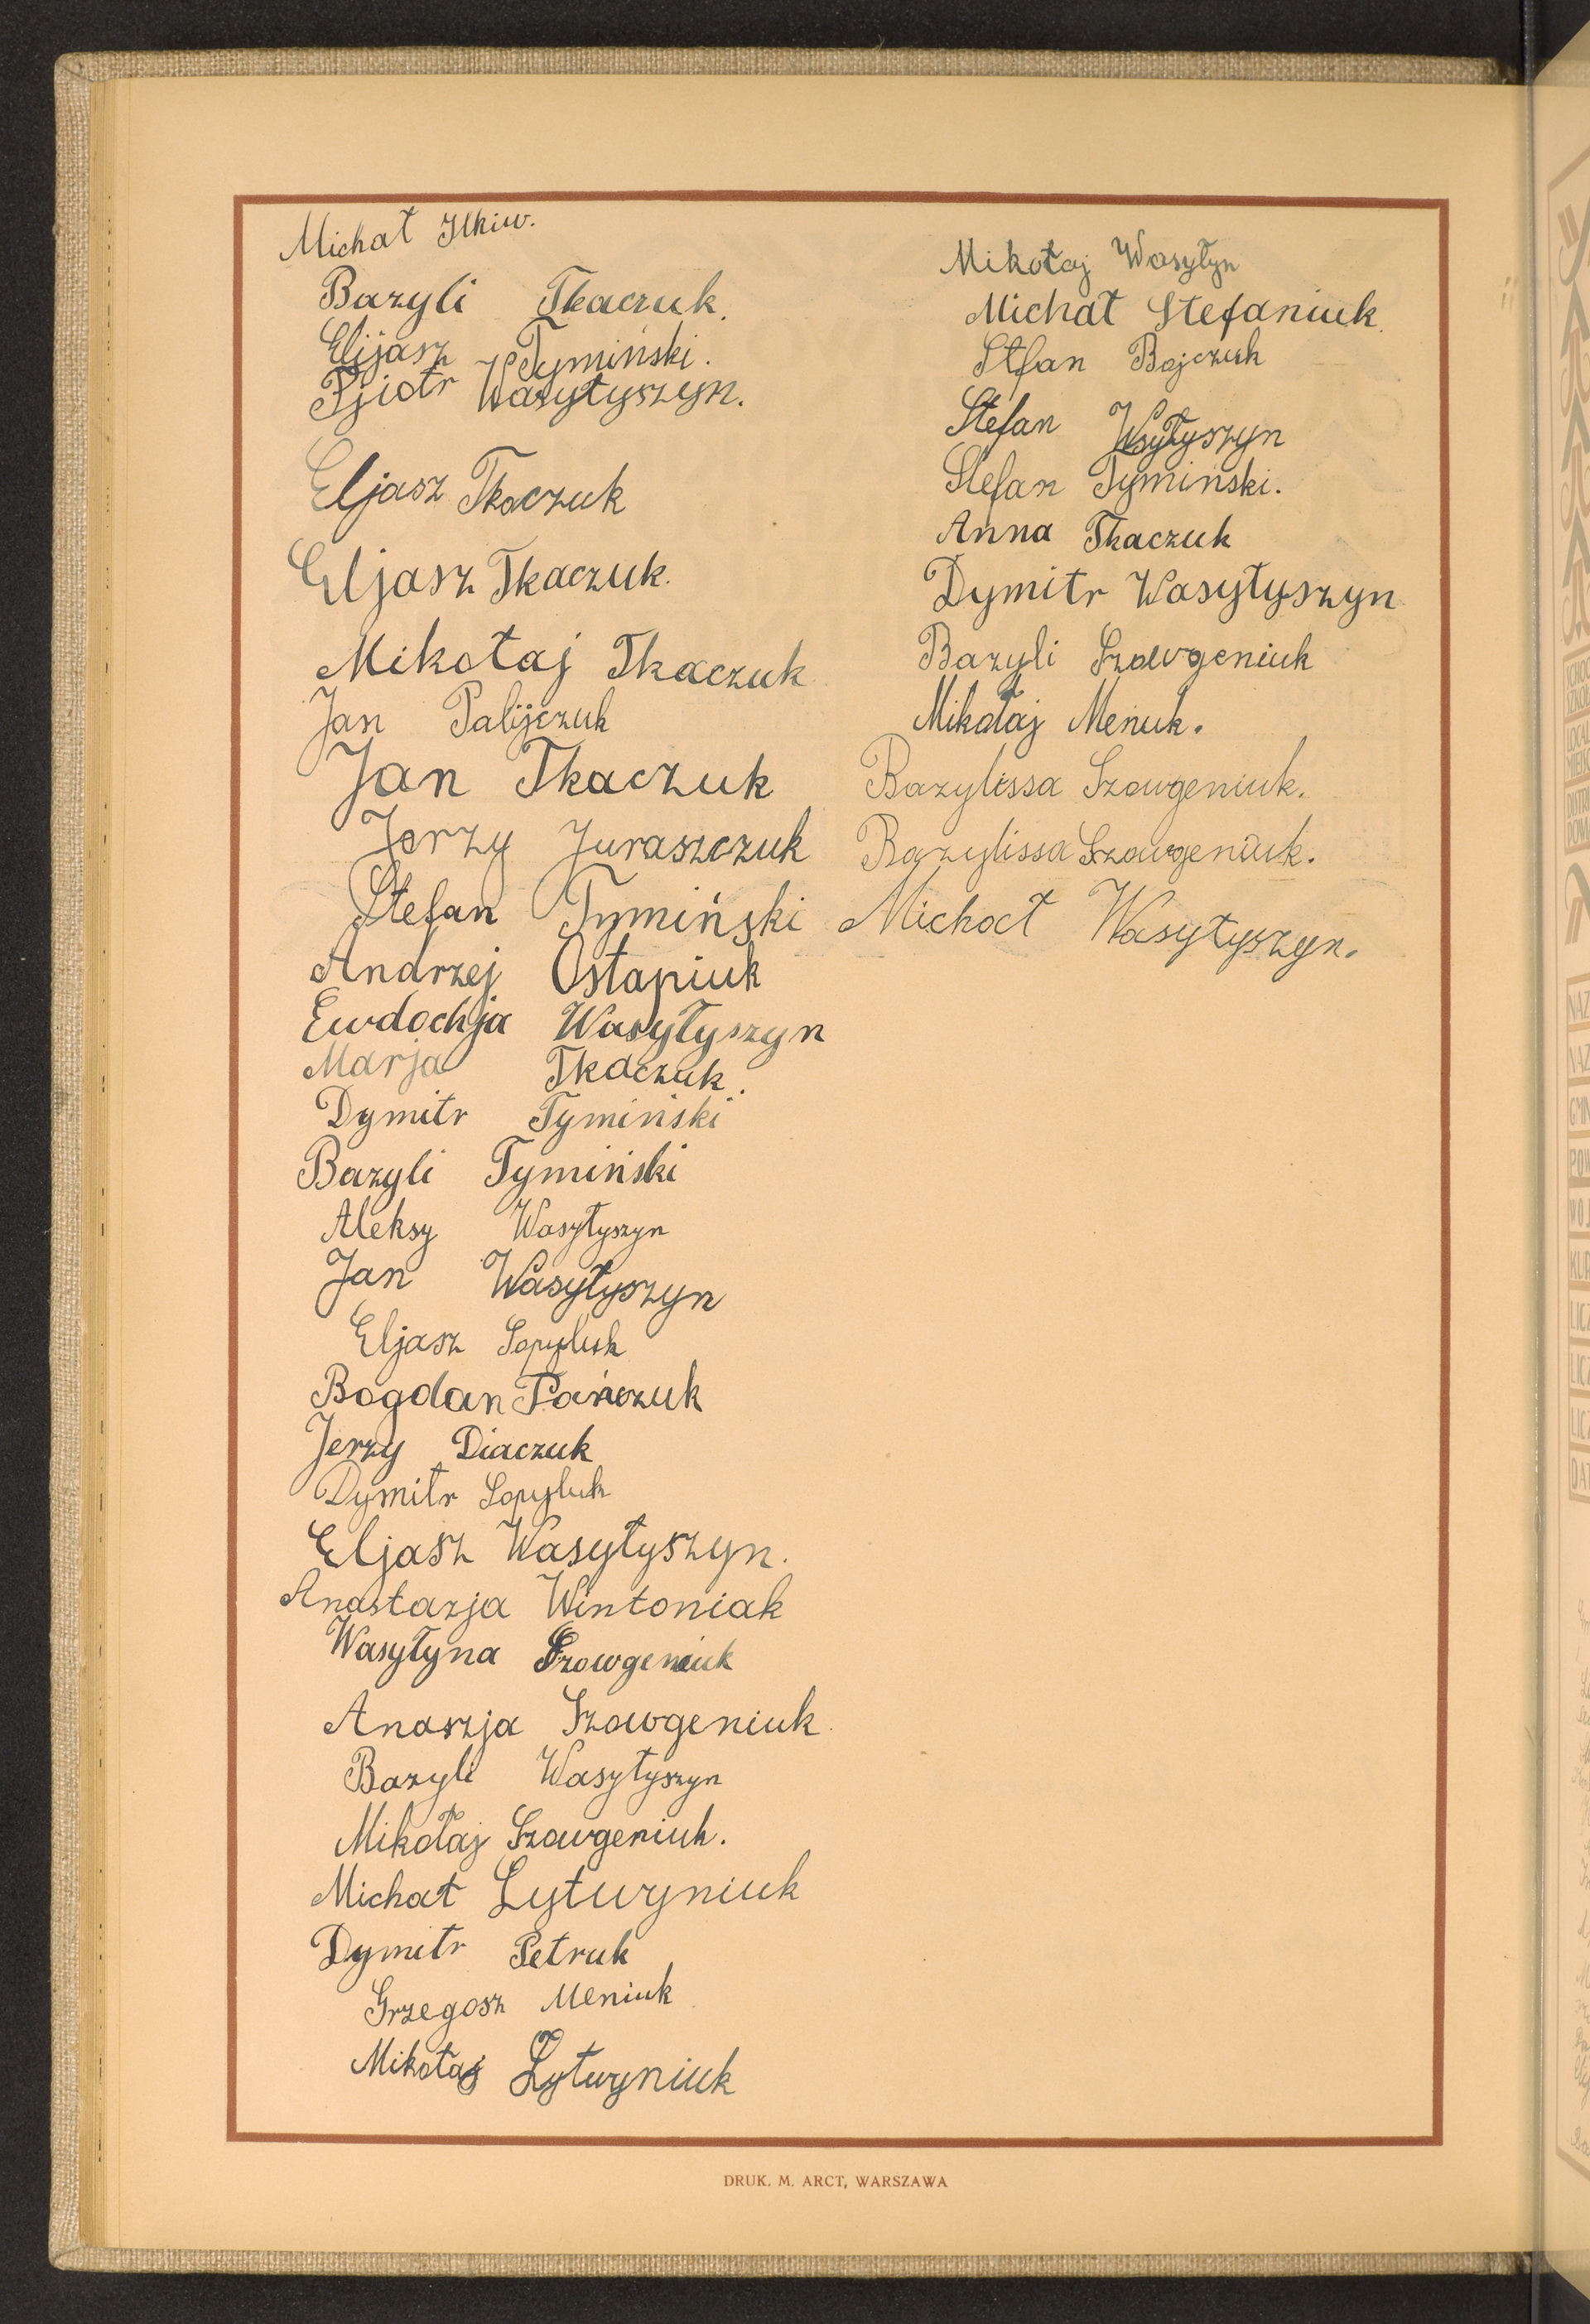 Michał Ilkiw.
Bazyli Tkaczuk.
Elijasz Tymiński.
Pjiotr Wasyłyszyn.
Eljasz Tkaczuk
Eljasz Tkaczuk.
Mikołaj Tkaczuk
Jan Palijczuk
Jan Tkaczuk
Jerzy Juraszczuk
Stefan Tymiński
Andrzej Ostapiuk
Ewdochja Wasyłyszyn
Marja Tkaczuk.
Dymitr Tymiński
Bazyli Tymiński
Aleksy Wasyłyszyn
Jan Wasyłyszyn
Eljasz Sopyluk
Bogdan Pańczuk
Jerzy Diaczuk
Dymitr Sopyluk
Eljasz Wasyłyszyn.
Anastazja Wintoniak
Wasyłyna Szowgeniuk
Anaszja Szowgeniuk.
Bazyli Wasyłyszyn
Mikołaj Szowgeniuk.
Michał Lytwyniuk
Dymitr Petruk
Grzegosz Meniuk
Mikołaj Lytwyniuk
Mikołaj Wasyłyn
Michał Stefaniuk.
Stfan Bojczuk
Stefan Wsyłyszyn
Stefan Tymiński.
Anna Tkaczuk
Dymitr Wasyłyszyn
Bazyli Szowgeniuk
Mikołaj Menuk.
Bazylissa Szowgeniuk.
Bazylissa Szowgeniuk.
Michał Wasyłyszyn.
DRUK. M. ARCT, WARSZAWA